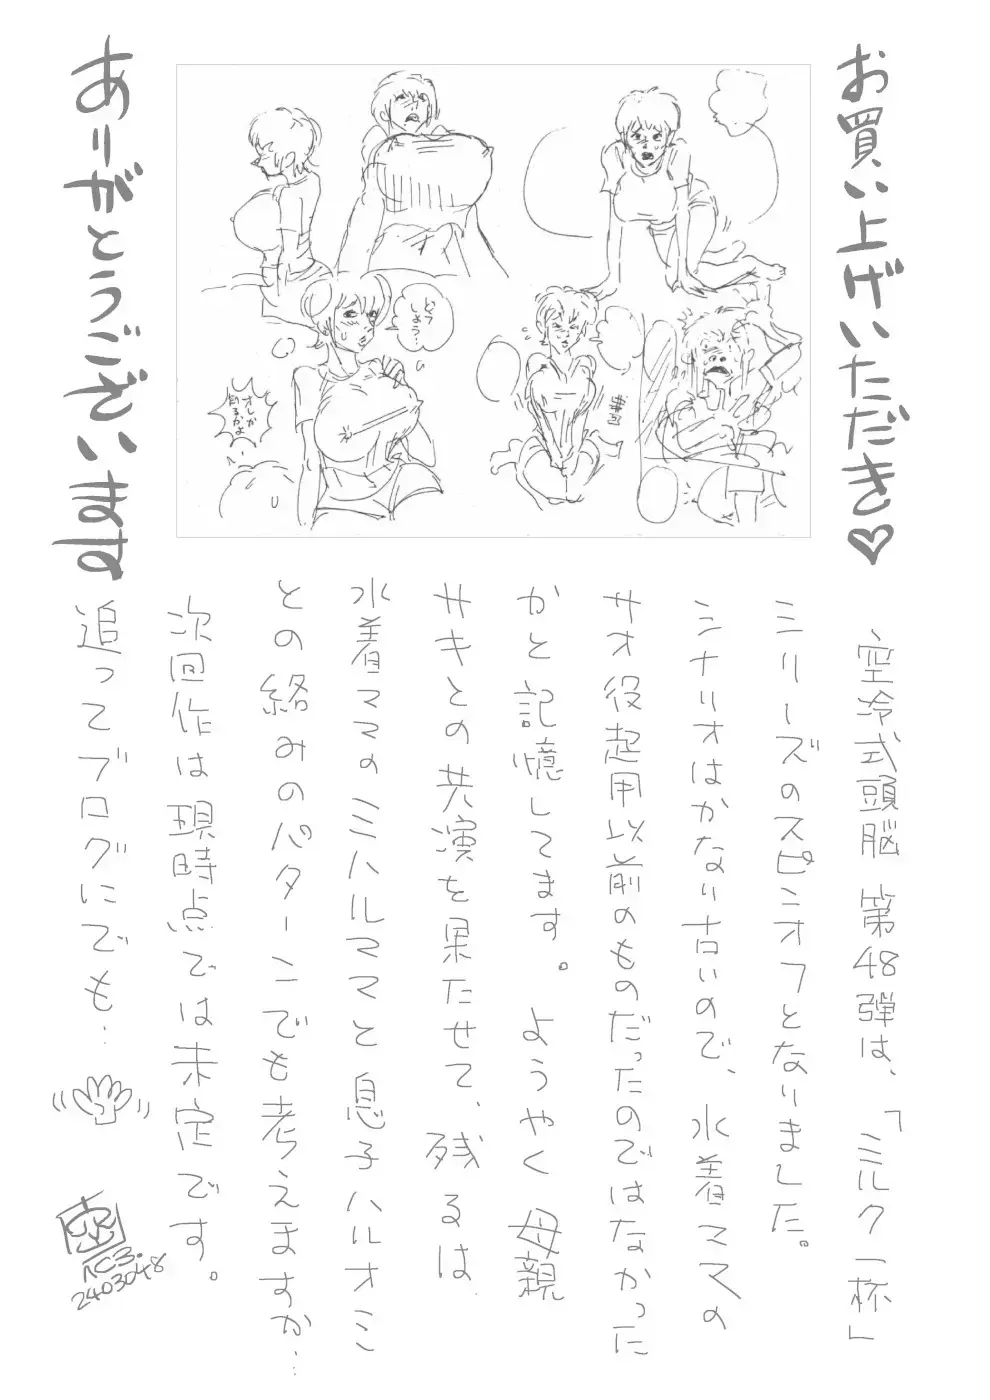 お買い上げいただき♡
ありがとうございます
どうしよう…
オレが
母るかよ
空冷式頭脳 第48弾は、「ミルク一杯」
シリーズのスピンオフとなりました。
シナリオはかなり古いので、水着ママの
サオ役起用以前のものだったのではなかった
かと記憶してます。ようやく母親
サキとの共演を果たせて、残るは
水着ママのミハルママと息子ハルオミ
との絡みのパターンでも考えますか…
次回作は現時点では未定です。
追ってブログにでも…
AC3.
2403048